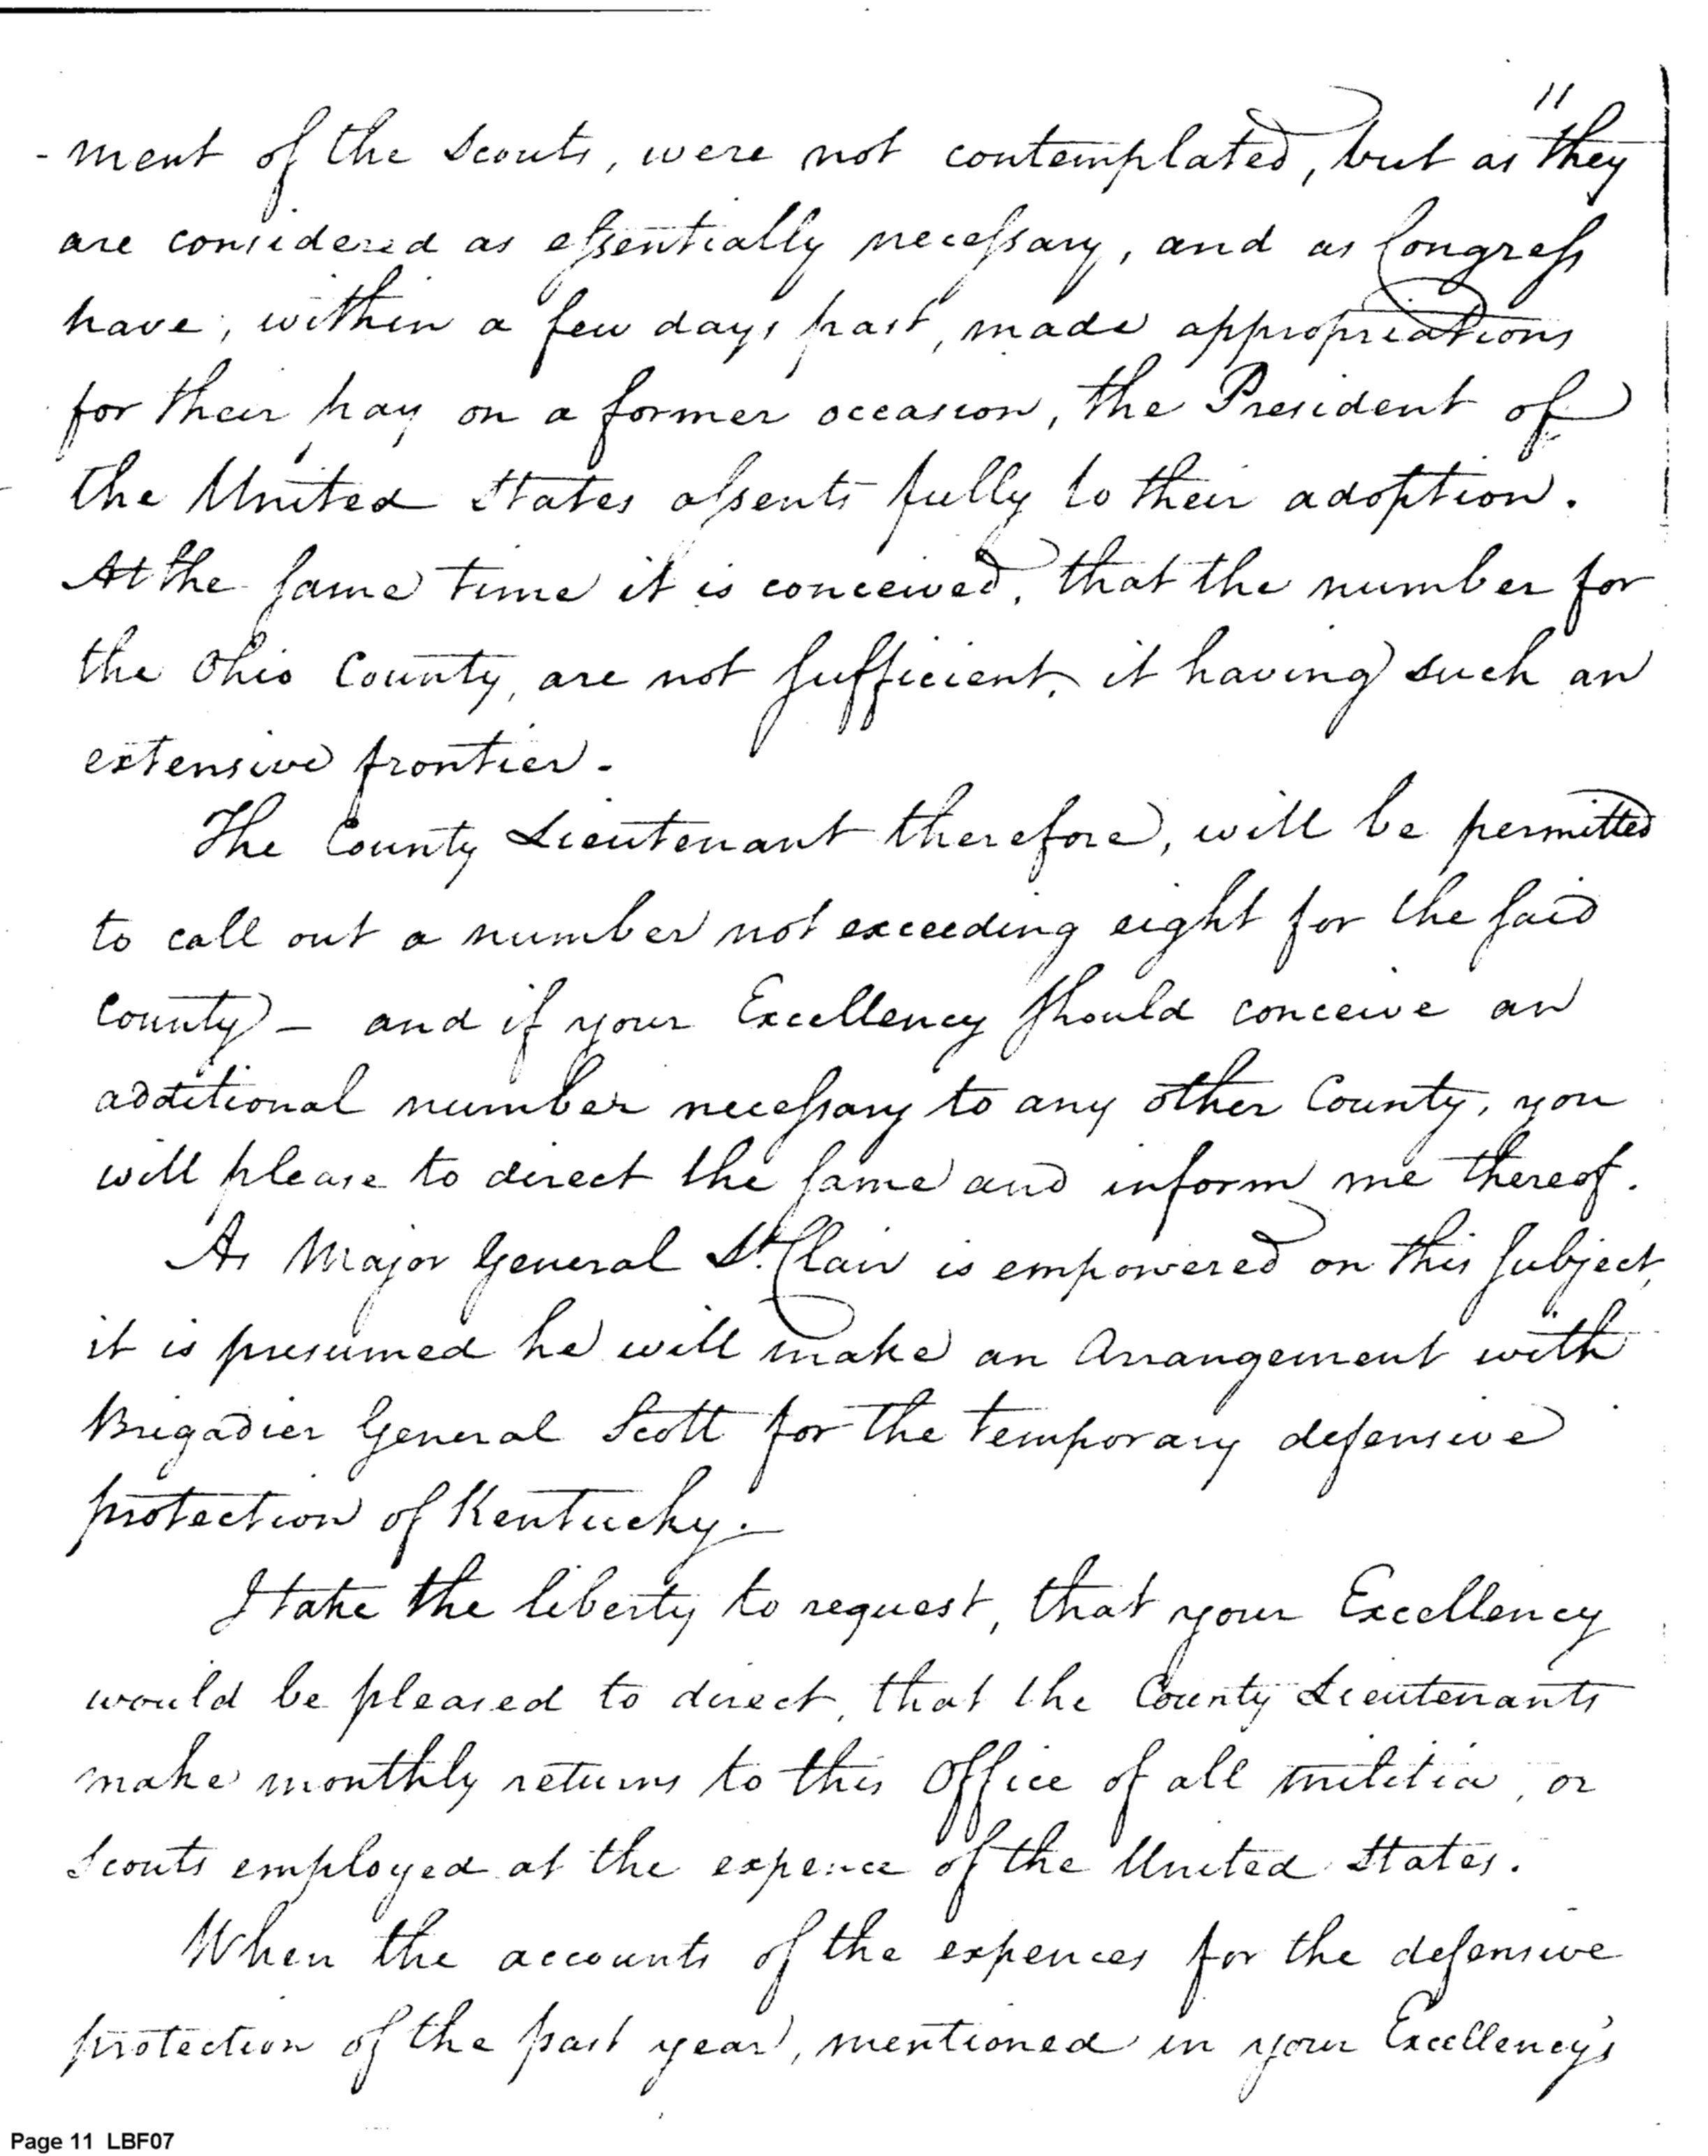 11
-ment of the Scouts, were not contemplated, but as they
are considered as essentially necessary, and as Congress
have, within a few days past, made appropriations
for their pay on a former occasion, the President of
the United States assents fully to their adoption.
At the same time it is conceived, that the number for
the Ohio County, are not sufficient, it having such an
extensive frontier.
The County Lieutenant therefore, will be permitted
to call out a number not exceeding eight for the said
County - and if your Excellency should conceive an
additional number necessary to any other County, you
will please to direct the same and inform me thereof.
As Major General St. Clair is empowered on this subject,
it is presumed he will make an Arrangement with
Brigadier General Scott for the temporary defensive
protection of Kentucky.
I take the liberty to request, that your Excellency
would be pleased to direct, that the County Lieutenants
make monthly returns to this Office of all militia, or
Scouts employed at the expence of the United States.
When the accounts of the expences for the defensive
protection of the past year, mentioned in your Excellency's
Page 11 LBF07